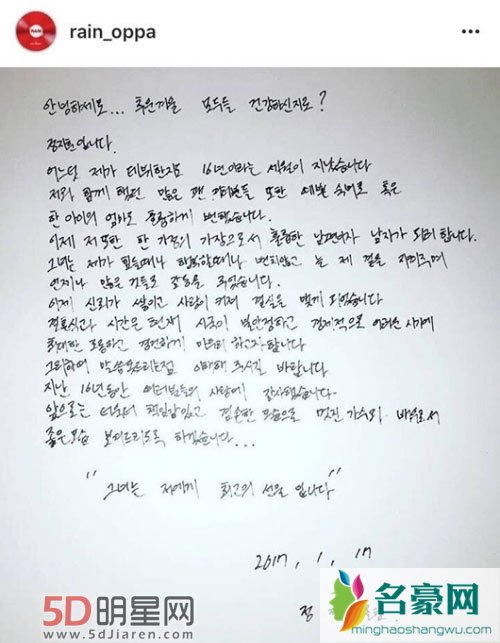 rain_oppa
안녕하세요... 추운겨울 모두들 건강하신지요?
정지훈입니다.
어느덧 제가 데뷔한지도 16년이라는 세월이 지났습니다
저와 함께 했던 많은 팬 여러분들 또한 예쁜 숙녀로 혹은
한 아이의 엄마로 훌륭하게 변했습니다.
이제 저또한 한 가정의 가장으로서 훌륭한 남편이자 남자가 되려합니다.
그녀는 제가 힘들때나 행복할때나 변치않고 늘 제 곁을 지켜주며
언제나 많은 것들로 감동을 주었습니다.
이제 신뢰가 쌓이고 사랑이 커져 결실을 맺게 되었습니다
결혼식과 시간은 현재 시국이 불안정하고 경제적으로 어려운 시기에
최대한 조용하고 경건하게 마무리 하고자합니다
그리하여 말씀못드리는점 이해해 주시길 바랍니다
지난 16년동안 여러분들의 사랑에 감사했습니다.
앞으로는 더욱더 책임감있고 겸손한 모습으로 멋진 가수와 배우로서
좋은모습 보여드리도록 하겠습니다...
"그녀는 저에게 최고의 선물 입니다"
2017, 1, 17
정
5D明星网
www.5djiaren.com
名豪网
minghaoshangwu.com